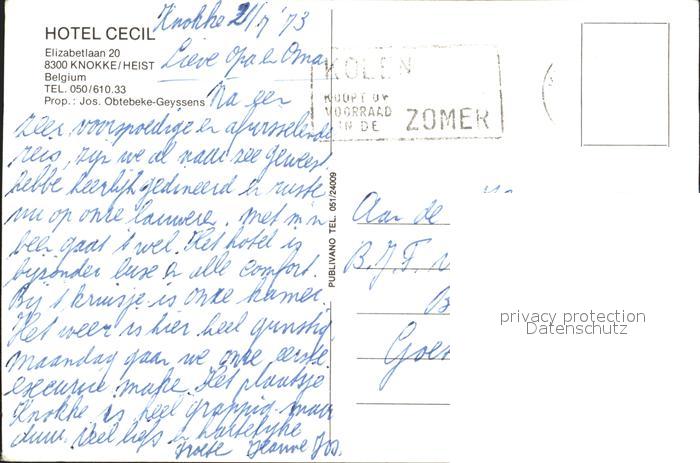 HOTEL CECIL
Elizabetlaan 20
8300 KNOKKE/HEIST
Belgium
TEL. 050/610.33
Prop.: Jos. Obtebeke-Geyssens
Knokke 21/7 '73
Lieve Opa en Oma
Na een
zeer voorspoedige en afwisselende
reis, zijn we al naar zee geweest
hebbe heerlijk gedineerd en ruste
nu op onze lauwere. Met m'n
been gaat 't wel. Het hotel is
bijzonder luxe en alle comfort.
Bij 't kruisje is onze kamer.
Het weer is hier heel gunstig,
maandag gaan we onze eerste
excursie make. Het plaatsje
Knokke is heel grappig maar
duur. Veel liefs en hartelijke
groete Jos.
KOLEN
KOOPT UW
VOORRAAD
IN DE ZOMER
PUBLIVANO TEL. 051/24009
Aan de
B.J.F.
Goes
privacy protection
Datenschutz